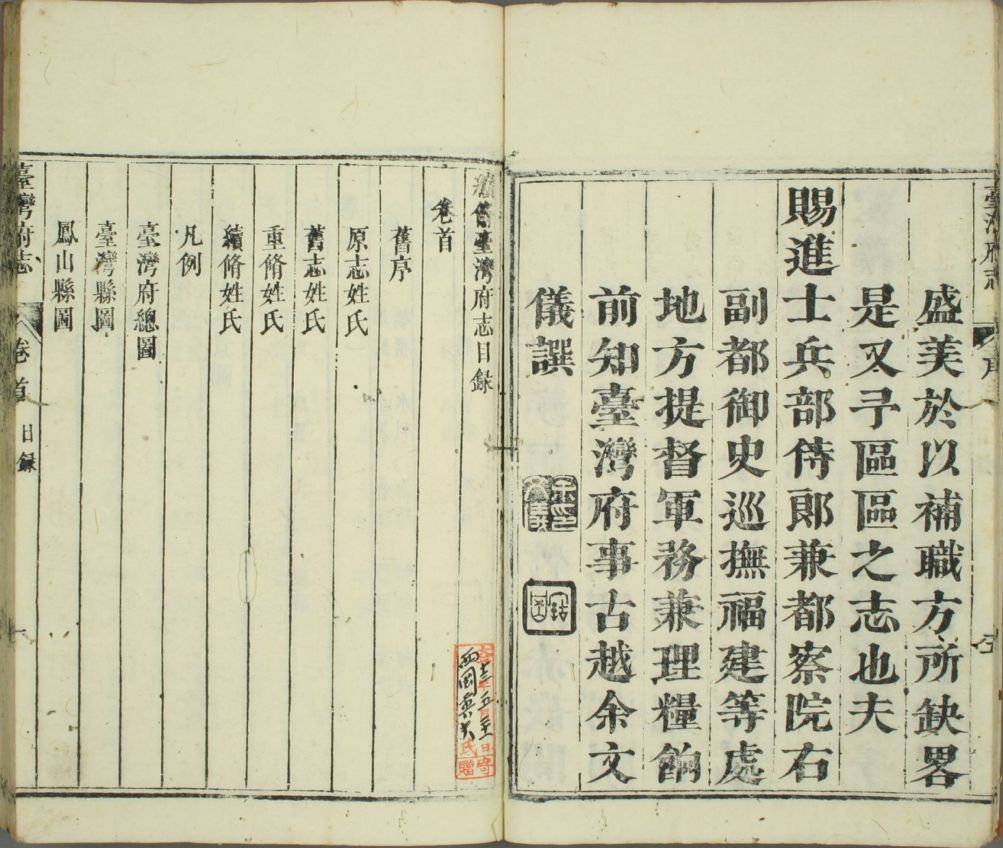 臺灣府志
盛美於以補職方所缺畧
是又予區區之志也夫
賜進士兵部侍郎兼都察院右
副都御史巡撫福建等處
地方提督軍務兼理糧餉
前知臺灣府事古越余文
儀譔
續脩臺灣府志目録
卷首
舊序
原志姓氏
舊志姓氏
重脩姓氏
續脩姓氏
凡例
臺灣府總圖
臺灣縣圖
鳳山縣圖
臺灣府志
卷首
目録
一